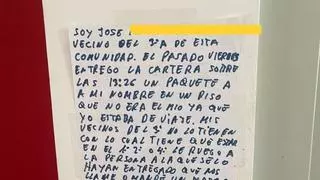 SOY JOSE
VECINO DEL 3ºA DE ESTA
COMUNIDAD. EL PASADO VIERNES
ENTREGO LA CARTERA SOBRE
LAS 13:26 UN PAQUETE A
A MI NOMBRE EN UN PISO
QUE NO ERA EL MIO YA QUE
YO ESTABA DE VIAJE. MIS
VECINOS DEL 3º NO LO TIENEN
CON LO CUAL TIENE QUE ESTAR
EN EL 1º 2º O 4º LE RUEGO A
LA PERSONA A LA QUE SE LO
HAYAN ENTREGADO QUE ME